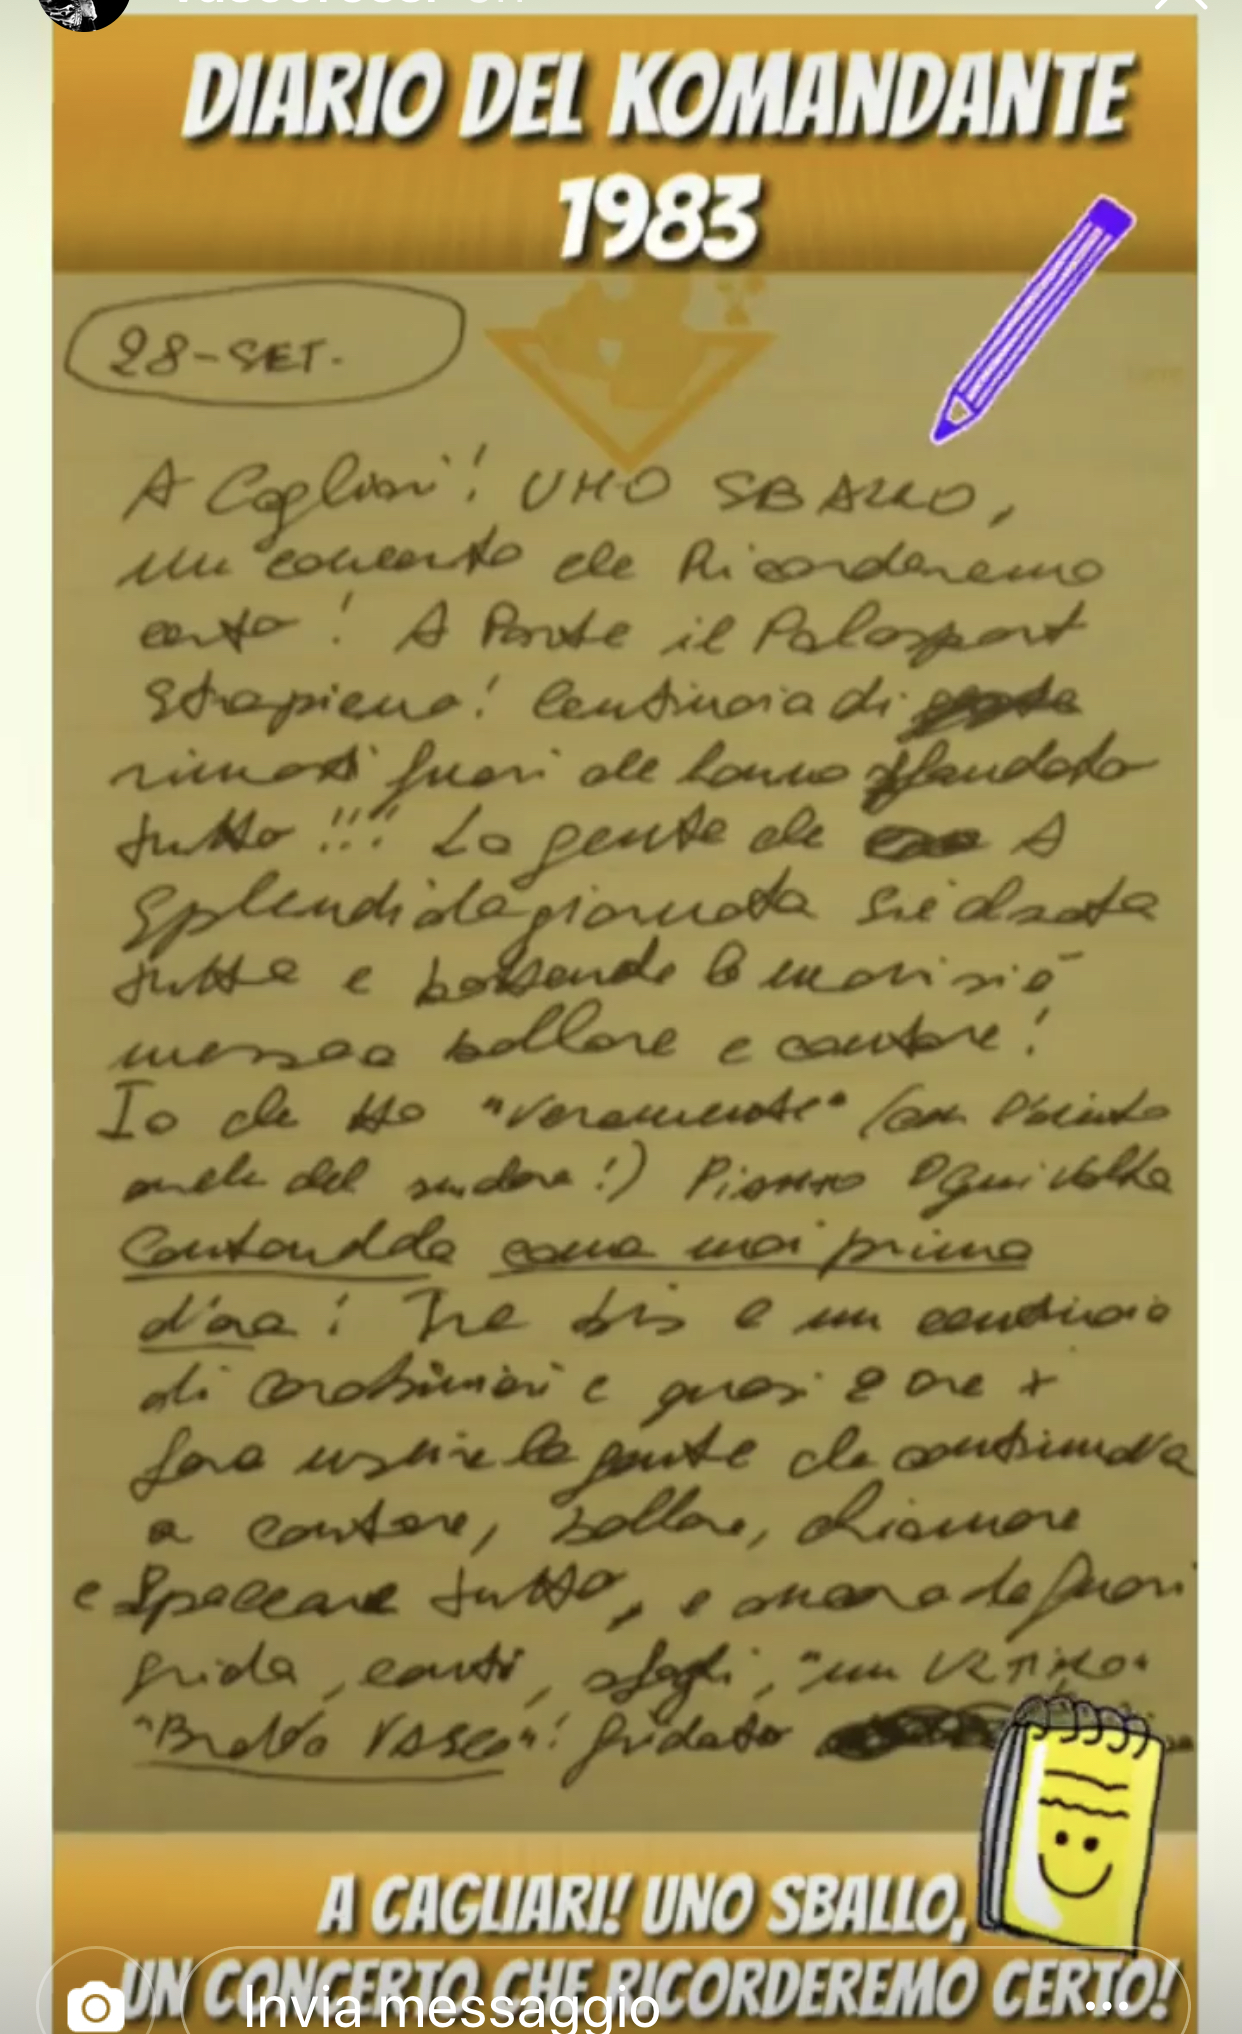 DIARIO DEL KOMANDANTE
1983
28-SET.
A Cagliari! UNO SBALLO,
un concerto che Ricorderemo
certo! A Parte il Palasport
strapieno! Centinaia di
rimasti fuori che hanno sfondato
tutto!!! La gente che A
Splendida giornata si è alzata
tutta e battendo le mani si è
messa a ballare e cantare!
Io che Ho "veramente" (con l'aiuto
anche del sudore!) Pianto Ogni volta
Cantandola come mai prima
d'ora! Tre bis e un centinaio
di carabinieri e quasi 2 ore x
fare uscire la gente che continuava
a cantare, ballare, chiamare
e Spaccare tutto, e ancora da fuori
grida, canti, "un ULTIMO"
"Bravo VASCO"! gridato
A CAGLIARI! UNO SBALLO,
UN CONCERTO CHE RICORDEREMO CERTO!
Invia messaggio